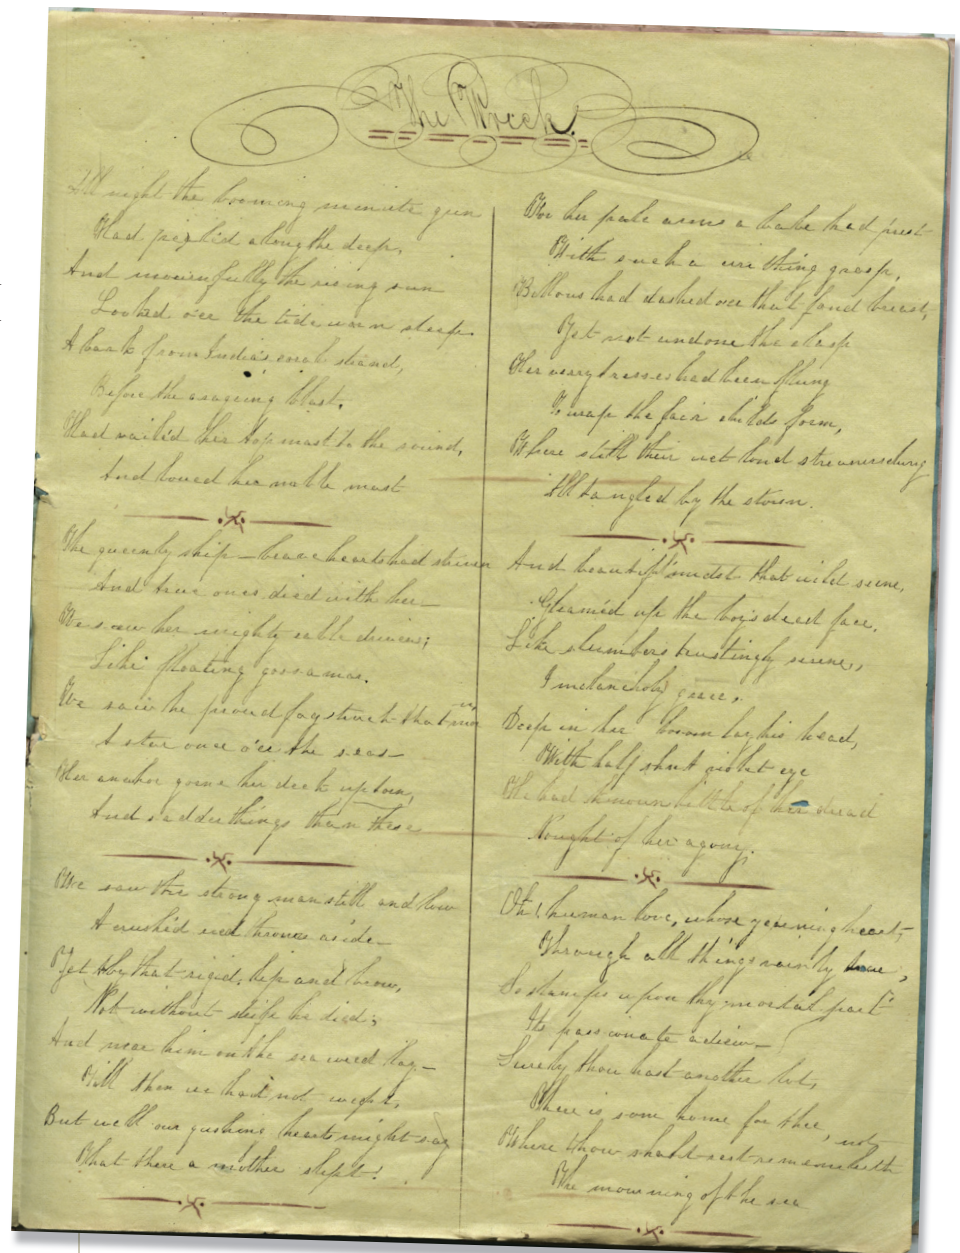 The Wreck.
All night the booming minute gun
Had peal'd along the deep,
And mournfully the rising sun
Looked o'er the tide worn steep.
A bark from India's coral strand,
Before the rageing blast,
Had vail'd her topmast to the sound,
And bowed her noble mast
The queenly ship – brave hearts had striven
And true ones died with her –
We saw her mighty cable driven;
Like floating gossamer.
We saw the proud flag struck that morn
A star once o'er the seas –
Her anchor gone her deck uptorn,
And sadder things than these
We saw the strong man still and low
A crush'd reed thrown aside –
Yet by that rigid lip and brow,
Not without strife he died;
And near him on the sea weed lay –
Till then we had not wept,
But well our gushing hearts might say
That there a mother slept!
For her pale arms a babe had prest
With such a writhing grasp,
Billows had dashed o'er that fond breast,
Yet not undone the clasp
Her very tresses had been flung
To wrap the fair childs form,
Where still their wet long streamers clung
All tangled by the storm.
And beautiful midst that wild scene,
Gleam'd up the boy's dead face,
Like slumbers trustingly serene,
I melancholy grace,
Deep in her bosom lay his head,
With half shut violet eye
He had known little of her dread
Nought of her agony.
Oh! human love, whose yearning heart,
Through all things vainly true,
So stamps upon thy mortal part
Its passionate adieu –
Surely thou hast another lot,
There is some home for thee,
Where thou shall rest remembereth not
The mourning of the sea